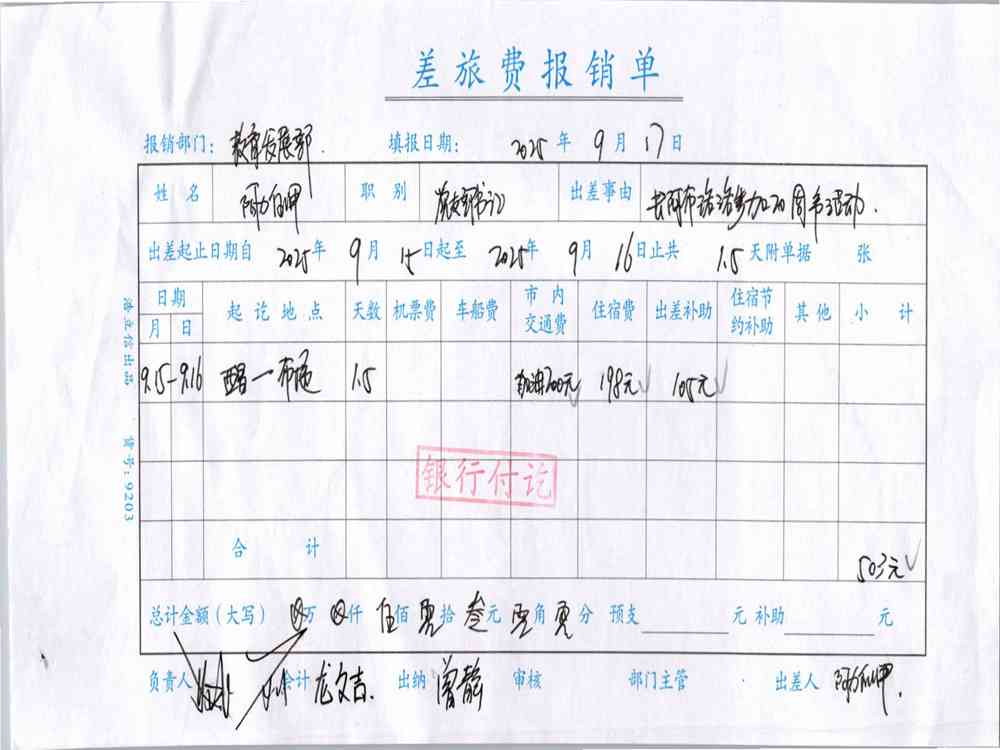 差旅费报销单
报销部门： 教育发展部. 填报日期： 2025 年 9 月 17 日
姓 名 职 别 出差事由 20周年活动.
出差起止日期自 2025 年 9 月 15 日起至 2025 年 9 月 16 日止共 1.5 天附单据 张
日期 起讫地点 天数 机票费 车船费 市内交通费 住宿费 出差补助 住宿节约补助 其他 小计
月 日
9.15-9.16 一布拖 1.5 加油200元 198元 105元
银行付讫
合 计 503元
总计金额（大写） ⊗万 ⊗仟 伍佰 零拾 叁元 零角 零分 预支 元 补助 元
负责人 会计 龙文吉. 出纳 曾静 审核 部门主管 出差人
港立信出品 货号：9203